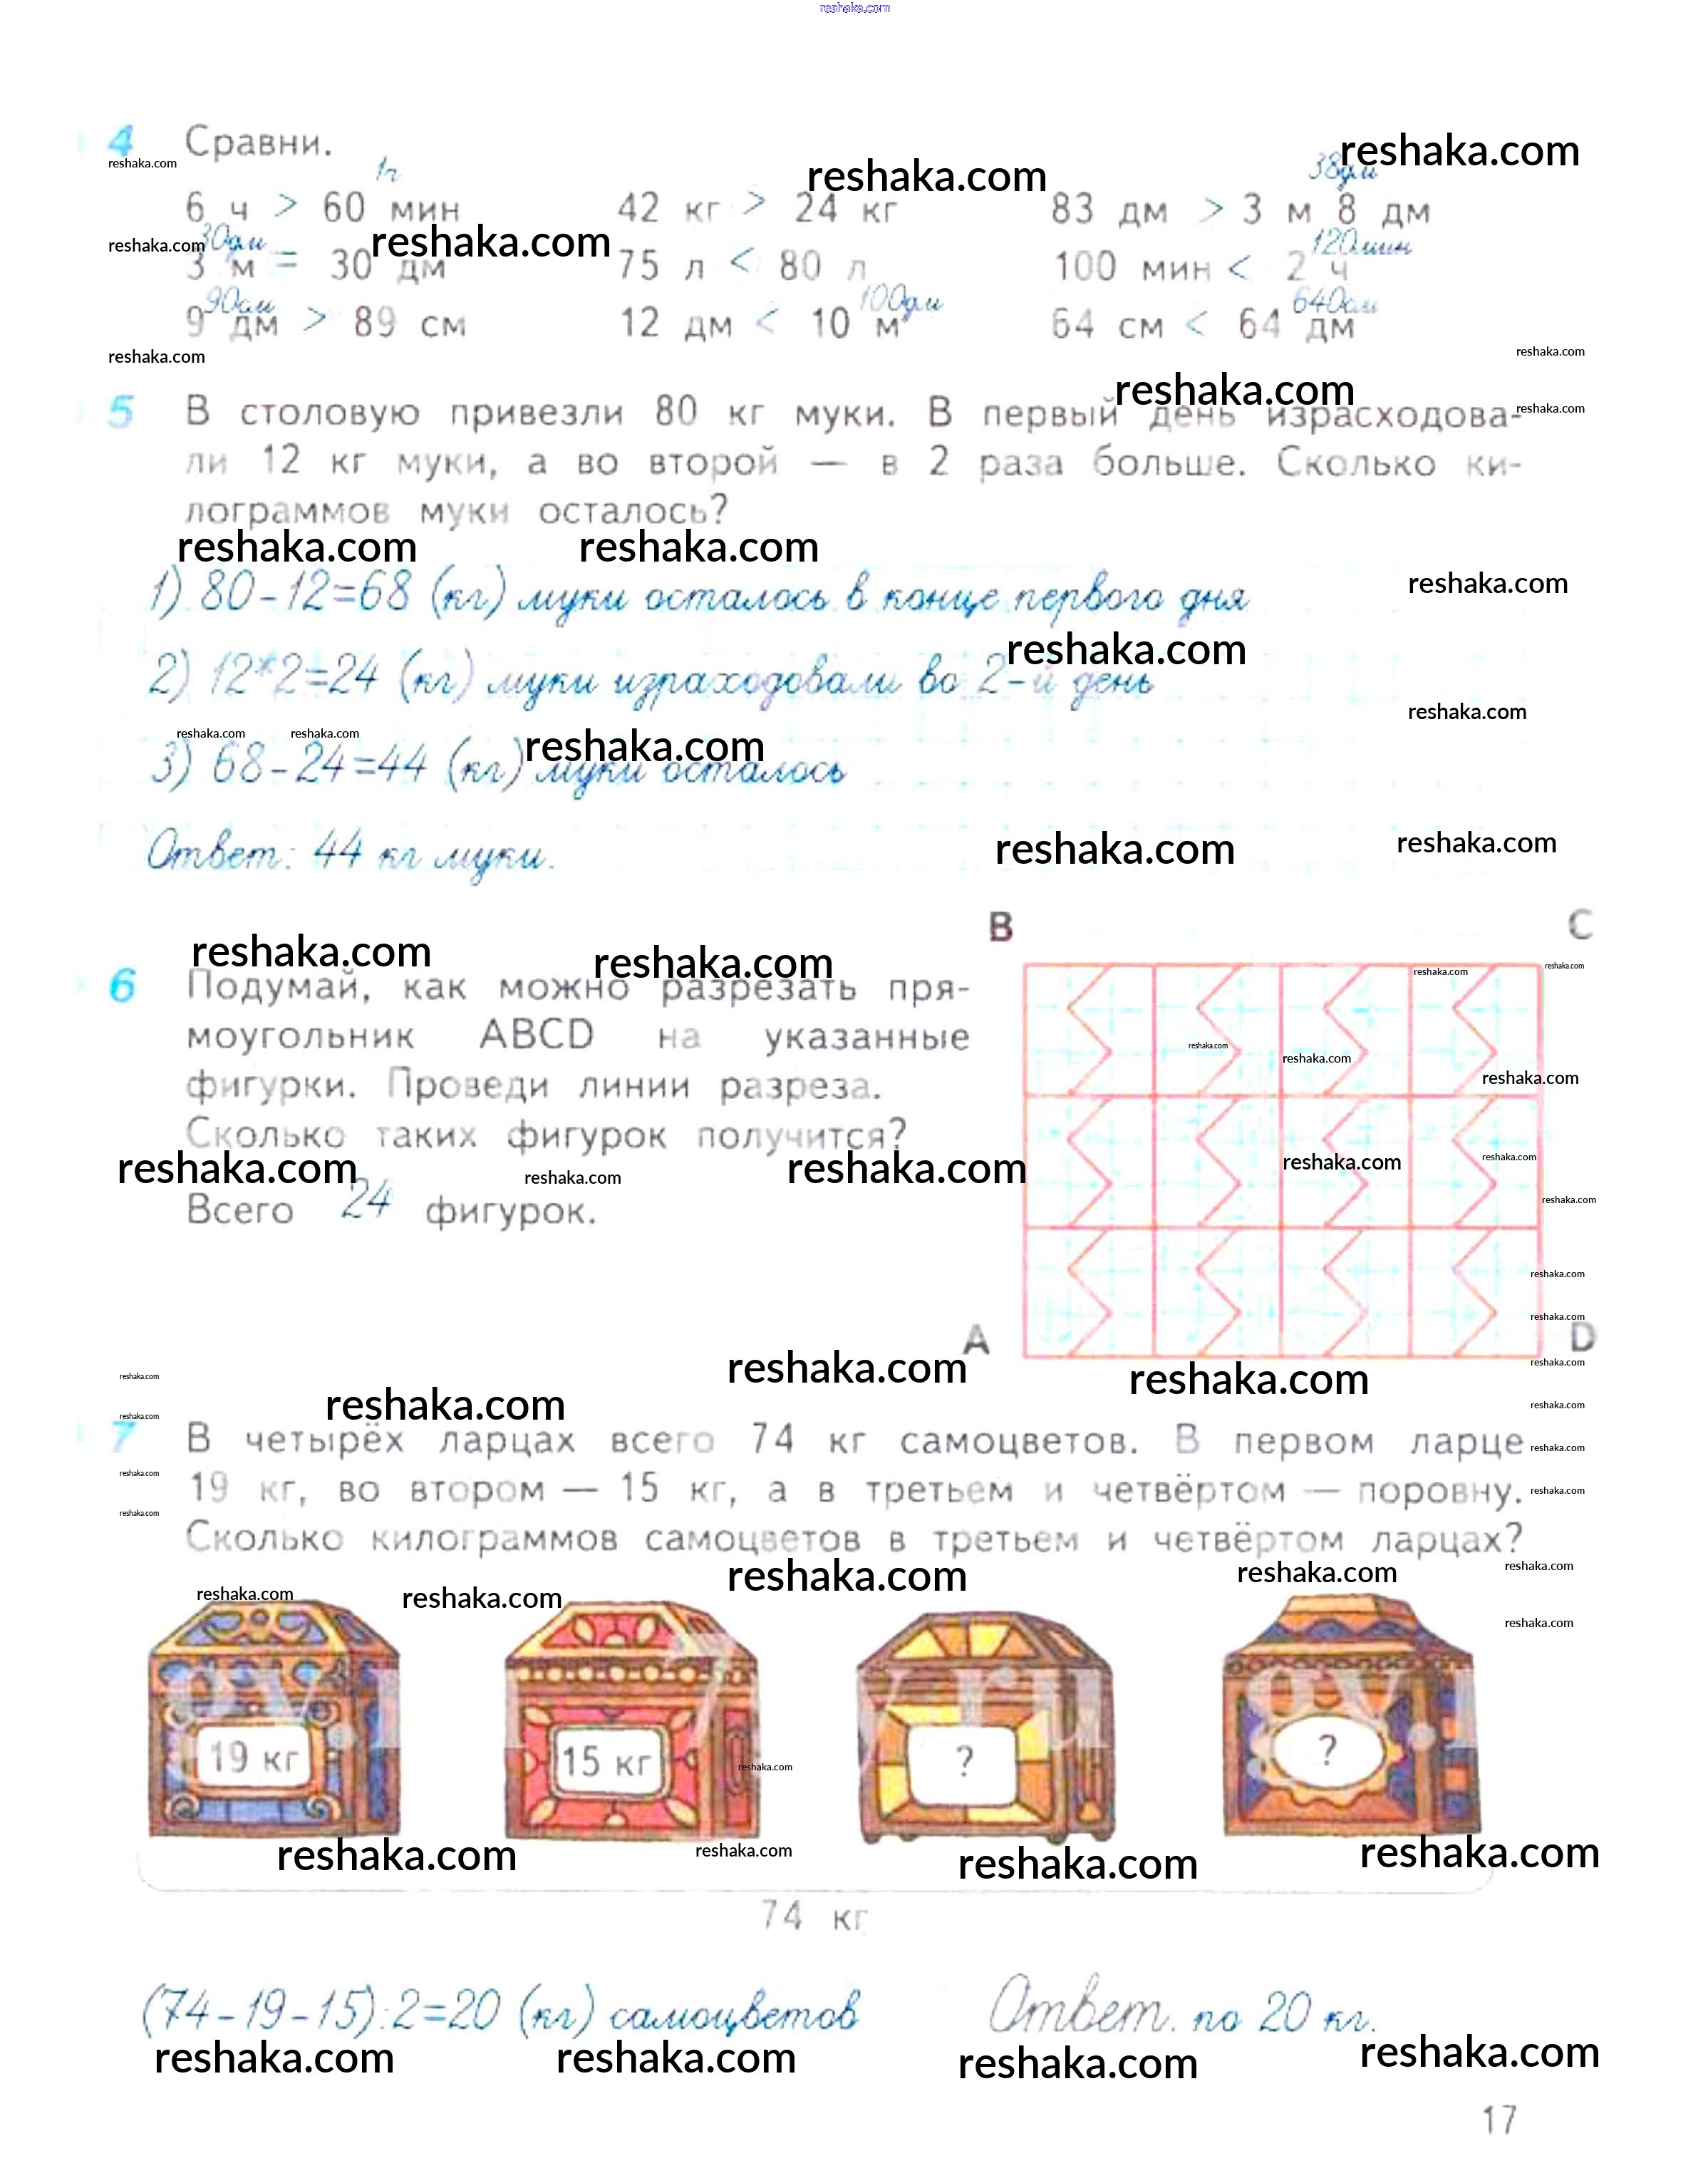 reshaka.com
4 Сравни.
1ч 38дм
6 ч > 60 мин 42 кг > 24 кг 83 дм > 3 м 8 дм
30дм 120мин
3 м = 30 дм 75 л < 80 л 100 мин < 2 ч
90см 100дм 640см
9 дм > 89 см 12 дм < 10 м 64 см < 64 дм
5 В столовую привезли 80 кг муки. В первый день израсходова-
ли 12 кг муки, а во второй — в 2 раза больше. Сколько ки-
лограммов муки осталось?
reshaka.com reshaka.com
1) 80-12=68 (кг) муки осталось в конце первого дня
2) 12*2=24 (кг) муки израходовали во 2-й день
3) 68-24=44 (кг) муки осталось
Ответ: 44 кг муки.
B C
6 Подумай, как можно разрезать пря-
моугольник ABCD на указанные
фигурки. Проведи линии разреза.
Сколько таких фигурок получится?
Всего 24 фигурок.
A D
7 В четырёх ларцах всего 74 кг самоцветов. В первом ларце
19 кг, во втором — 15 кг, а в третьем и четвёртом — поровну.
Сколько килограммов самоцветов в третьем и четвёртом ларцах?
19 кг 15 кг ? ?
74 кг
(74-19-15):2=20 (кг) самоцветов Ответ. по 20 кг.
reshaka.com reshaka.com reshaka.com reshaka.com
17